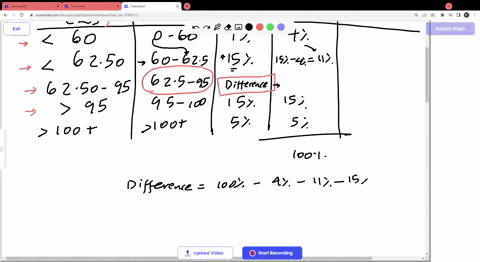 Exit
Submit Video
< 60 0-60 4% 4%
< 62.50 60-62.5 +15% 15%-4%=11%
62.50-95 62.5-95 Difference
> 95 95-100 15% 15%
>100+ >100+ 5% 5%
100%
Difference = 100% - 4% - 11% - 15%
Upload Video
Start Recording